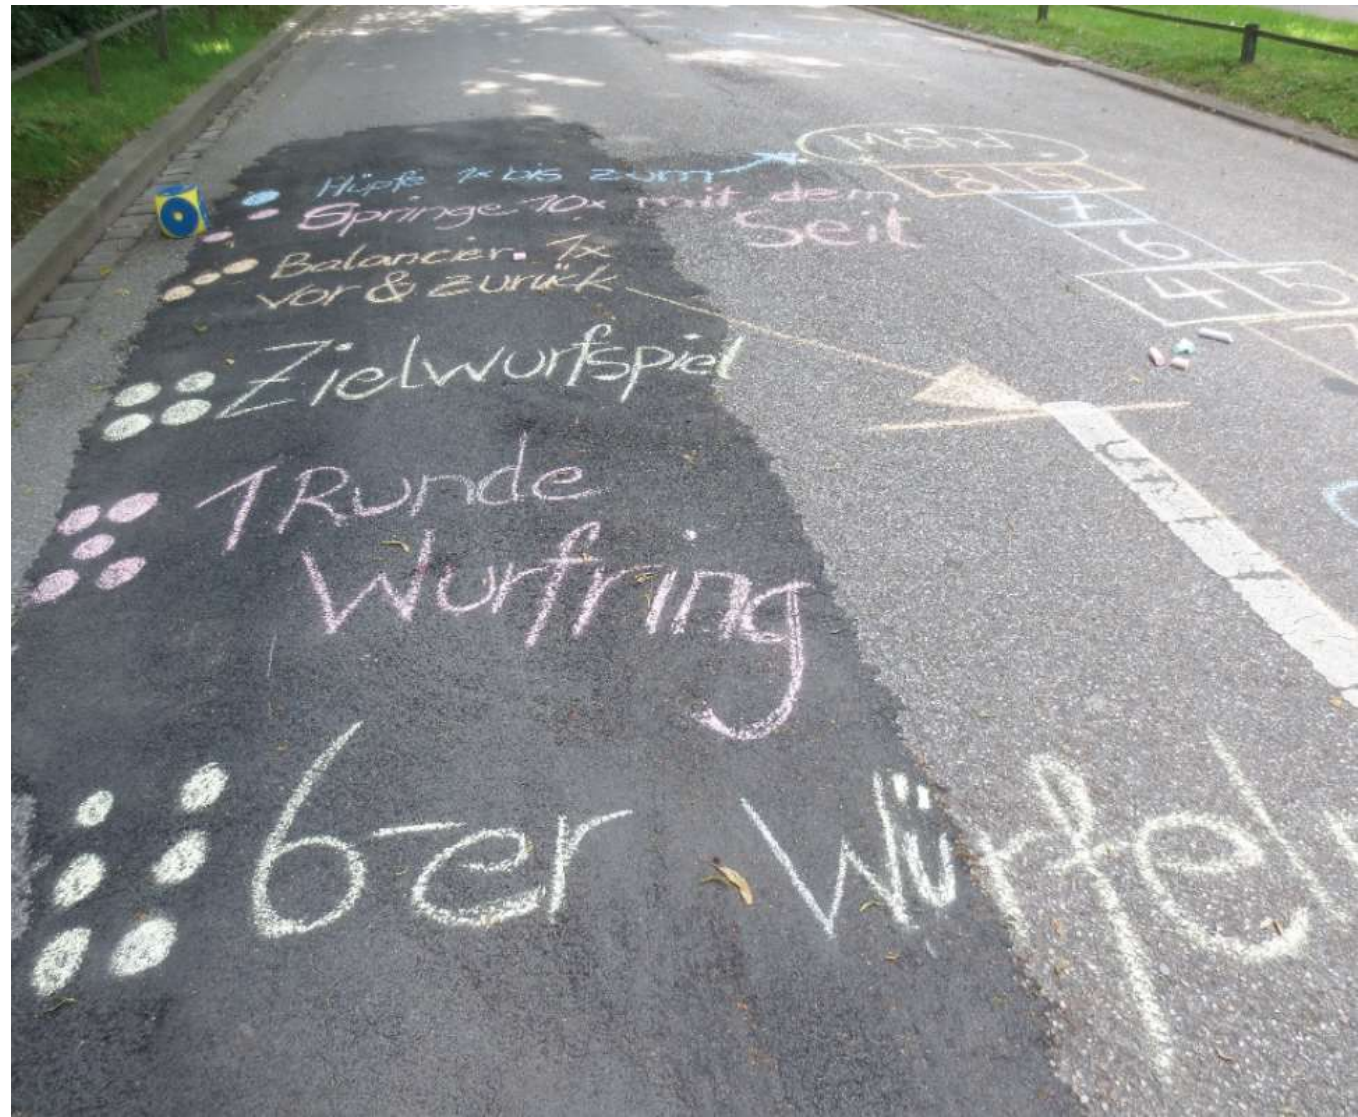 Hüpfe 1x bis zum
Springe 10x mit dem
Seil
Balancier 1x
vor & zurück
Zielwurfspiel
1 Runde
Wurfring
6-er Würfeln
Mond
8 5
7
6
4 5